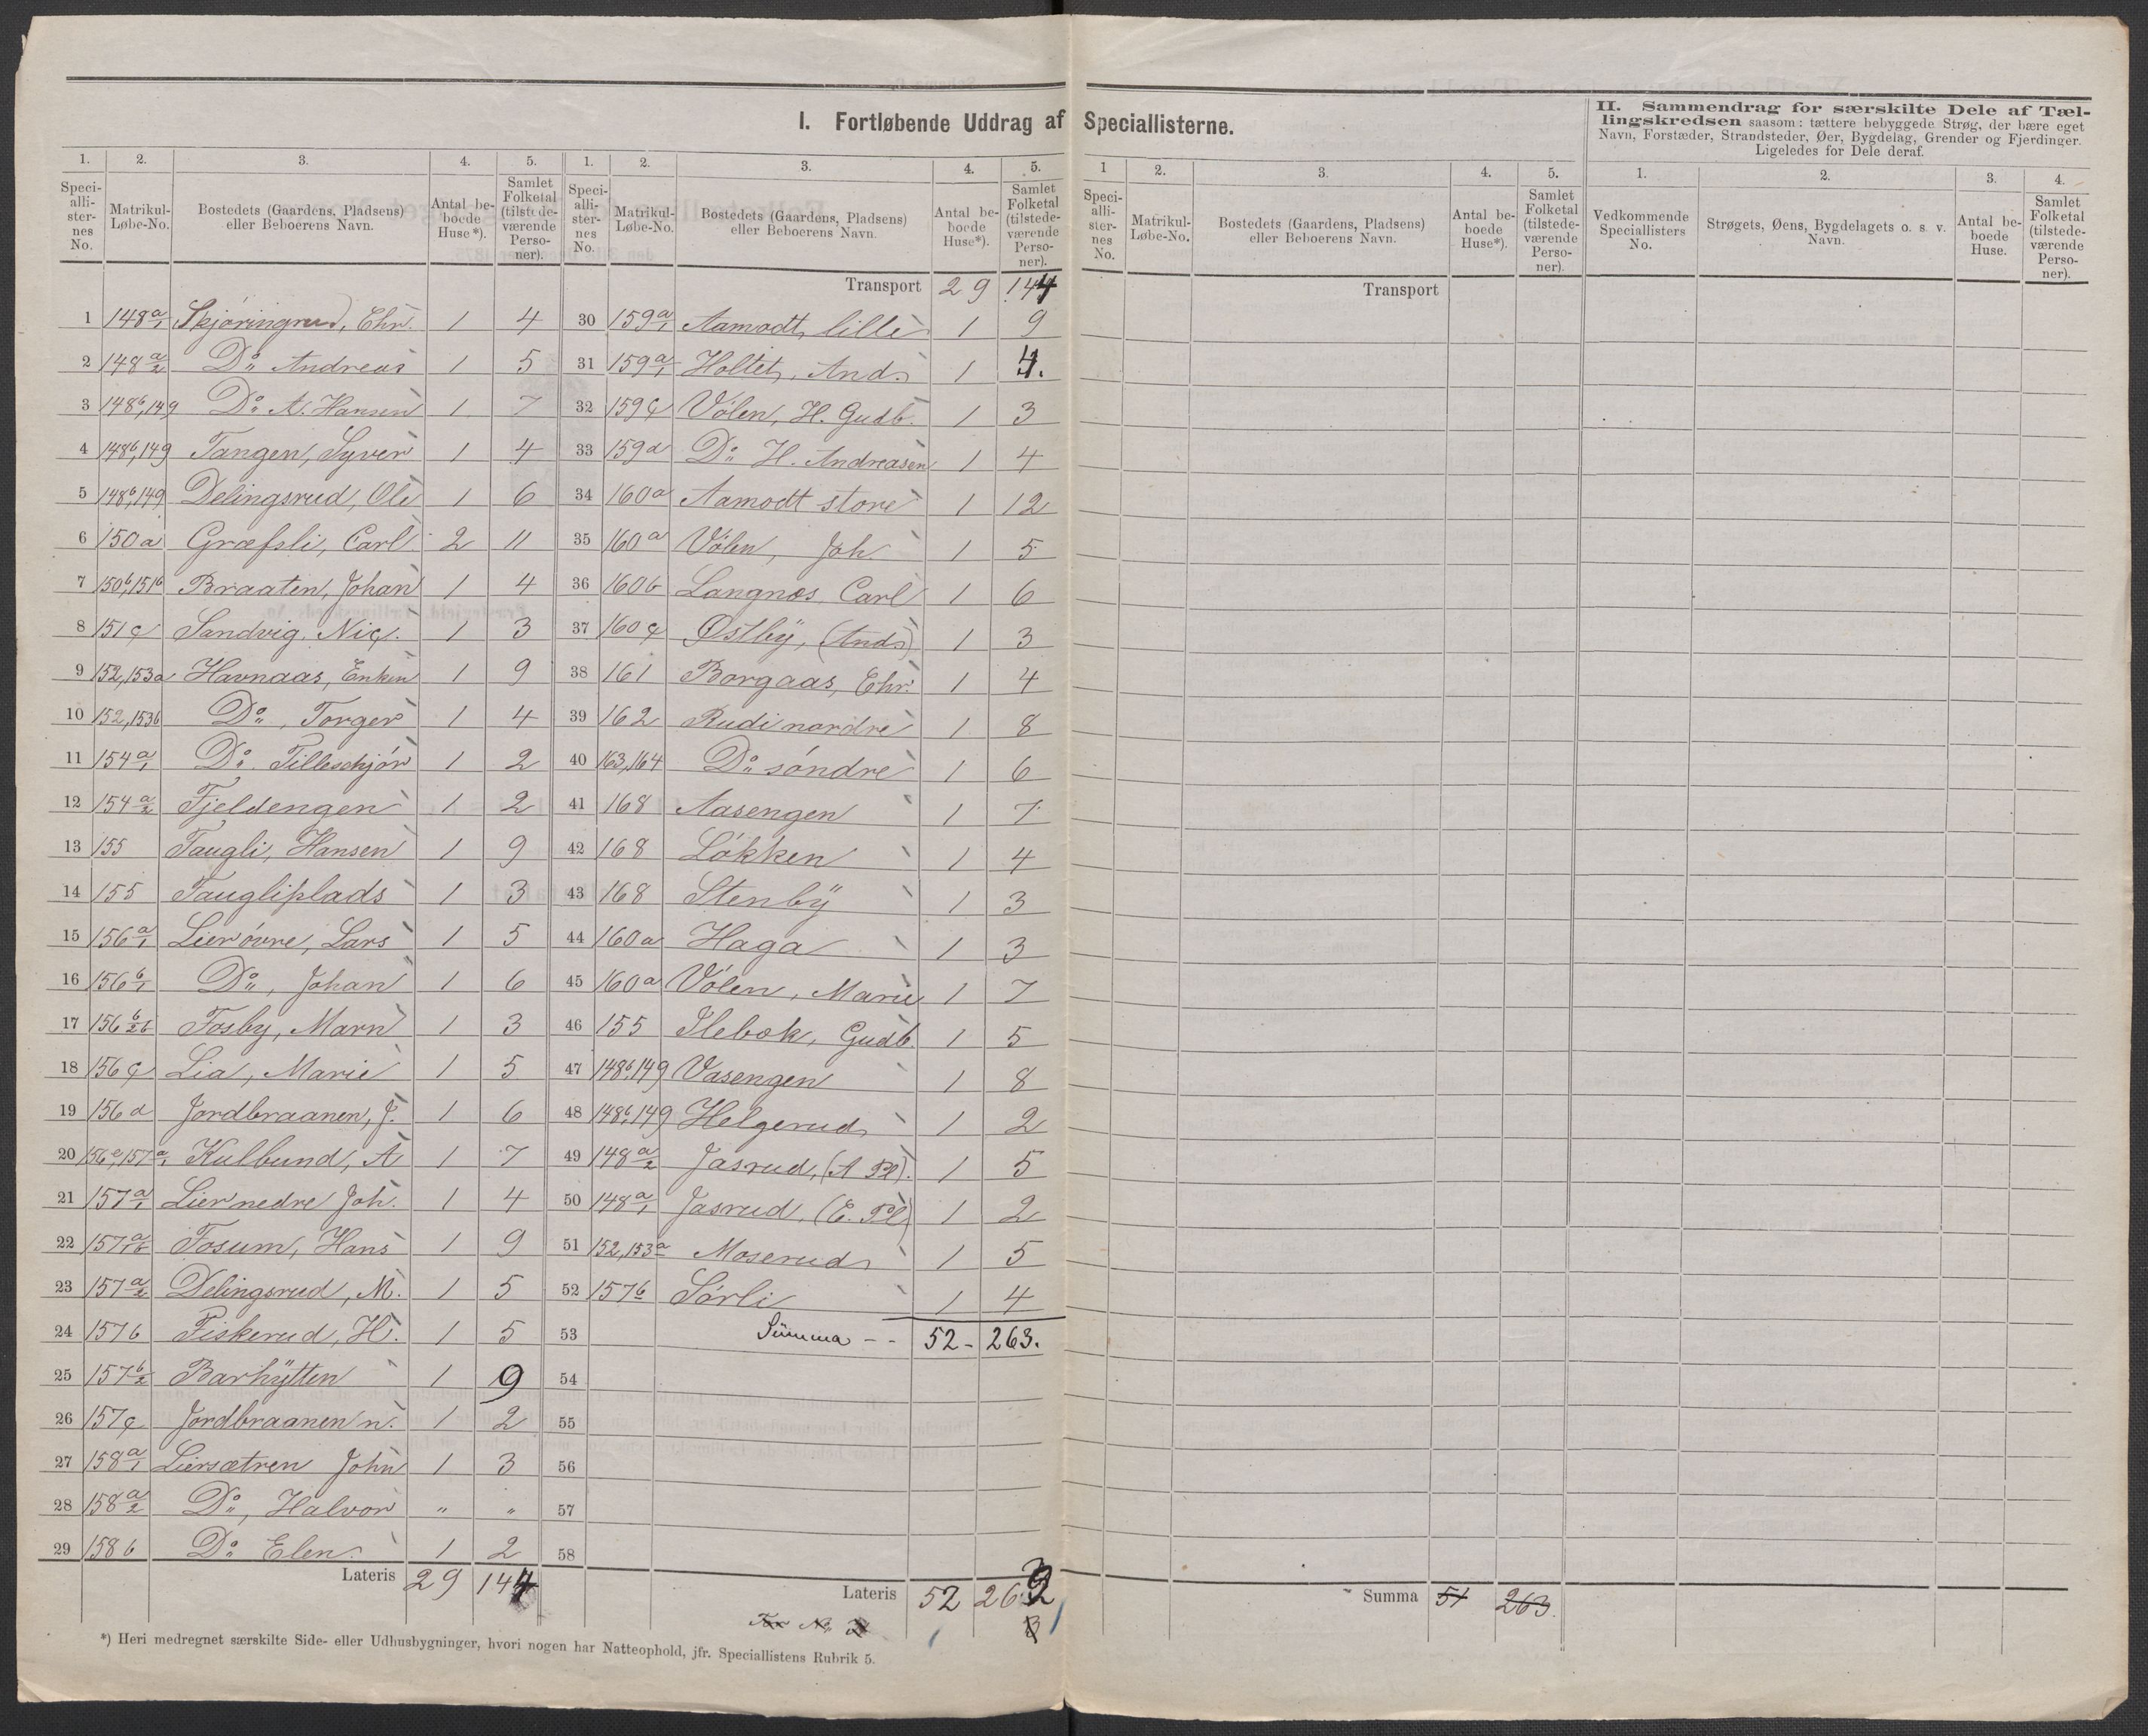 I. Fortløbende Uddrag af Speciallisterne.
II. Sammendrag for særskilte Dele af Tæl-
lingskredsen saasom: tættere bebyggede Strøg, der bære eget
Navn, Forstæder, Strandsteder, Øer, Bygdelag, Grender og Fjerdinger.
Ligeledes for Dele deraf.
1. 2. 3. 4. 5. 1. 2. 3. 4. 5. 1 2. 3. 4. 5. 1. 2. 3. 4.
Speci-alli-ster-nes No. Matrikul-Løbe-No. Bostedets (Gaardens, Pladsens) eller Beboerens Navn. Antal be-boede Huse*). Samlet Folketal (tilstede-værende Perso-ner).
Speci-alli-ster-nes No. Matrikul-Løbe-No. Bostedets (Gaardens, Pladsens) eller Beboerens Navn. Antal be-boede Huse*). Samlet Folketal (tilstede-værende Perso-ner).
Speci-alli-ster-nes No. Matrikul-Løbe-No. Bostedets (Gaardens, Pladsens) eller Beboerens Navn. Antal be-boede Huse*). Samlet Folketal (tilstede-værende Perso-ner).
Vedkommende Speciallisters No. Strøgets, Øens, Bygdelagets o. s. v. Navn. Antal be-boede Huse. Samlet Folketal (tilstede-værende Perso-ner).
1 148a/1 Skjøringrud, Chr. 1 4
2 148a/2 Do Andreas 1 5
3 148b,149 Do A. Hansen 1 7
4 148b,149 Tangen, Syver 1 4
5 148b,149 Delingsrud, Ole 1 6
6 150a Græfsli, Carl 2 11
7 150b,151b Braaten, Johan 1 4
8 151c Sandvig, Nic. 1 3
9 152,153a Havnaas, Enken 1 9
10 152,153b Do, Torger 1 4
11 154a/1 Do Tilleschjør 1 2
12 154a/2 Fjeldengen 1 2
13 155 Taugli, Hansen 1 9
14 155 Taugliplads 1 3
15 156a/1 Lier øvre, Lars 1 5
16 156b/1 Do, Johan 1 6
17 156b/2b Fosby, Marn 1 3
18 156c Lia, Marie 1 5
19 156d Jordbraanen, J. 1 6
20 156e,157a/1 Kulbund, A 1 7
21 157a/1 Lier nedre Joh. 1 4
22 157a/1b Fosum, Hans 1 9
23 157a/2 Delingsrud, M. 1 5
24 157b Fiskerud, H. 1 5
25 157b/2 Barhytten 1 9
26 157c Jordbraanen n. 1 2
27 158a/1 Liersætren John 1 3
28 158a/2 Do, Halvor " "
29 158b Do Elen 1 2
Lateris 29 144
Transport 29 144
30 159a/1 Aamodt, lille 1 9
31 159a/1 Holtet, And. 1 4.
32 159c Vølen, H. Gudb. 1 3
33 159d Do H. Andreasen 1 4
34 160a Aamodt store 1 12
35 160a Vølen, Joh 1 5
36 160b Langnæs, Carl 1 6
37 160c Østby, (Ands) 1 3
38 161 Borgaas, Chr. 1 4
39 162 Rudi nordre 1 8
40 163,164 Do søndre 1 6
41 168 Aasengen 1 7
42 168 Løkken 1 4
43 168 Stenby 1 3
44 160a Haga 1 3
45 160a Vølen, Marie 1 7
46 155 Ilebæk, Gudb. 1 5
47 148b,149 Vasengen 1 8
48 148b,149 Helgerud 1 2
49 148a/2 Jasrud, (A Pl). 1 5
50 148a/1 Jasrud, (E. Pl) 1 2
51 152,153a Moserud 1 5
52 157b Sørli 1 4
53 Summa -- 52- 263.
54
55
56
57
58
Lateris 52 262
3
Transport
Summa 51 263.
*) Heri medregnet særskilte Side- eller Udhusbygninger, hvori nogen har Natteophold, jfr. Speciallistens Rubrik 5.